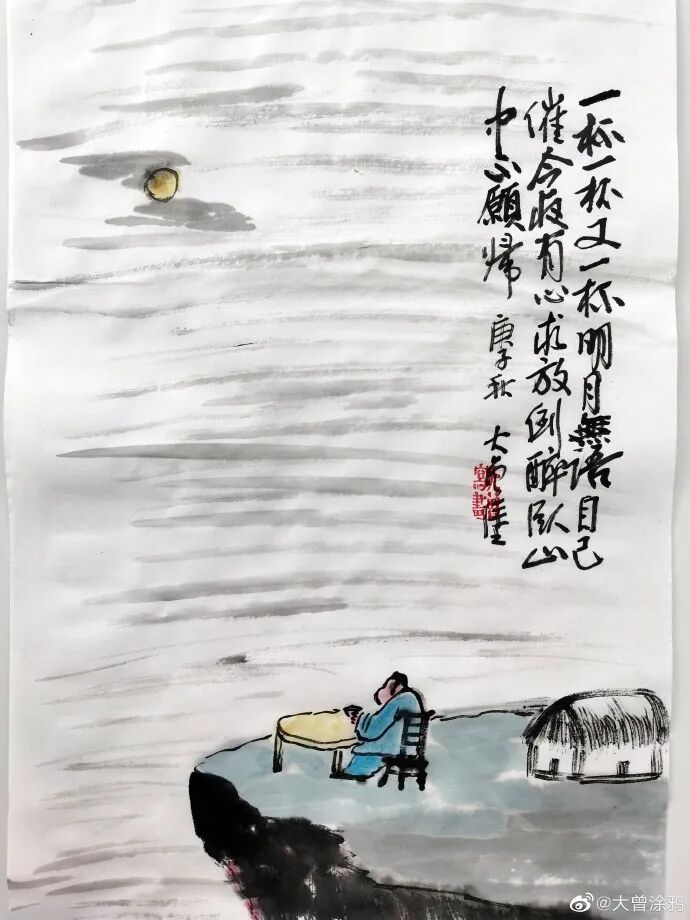 一杯一杯又一杯明月無語自己
催今夜有心求放倒醉臥山
中不願帰 庚子秋 大曾
@大曾涂鸦